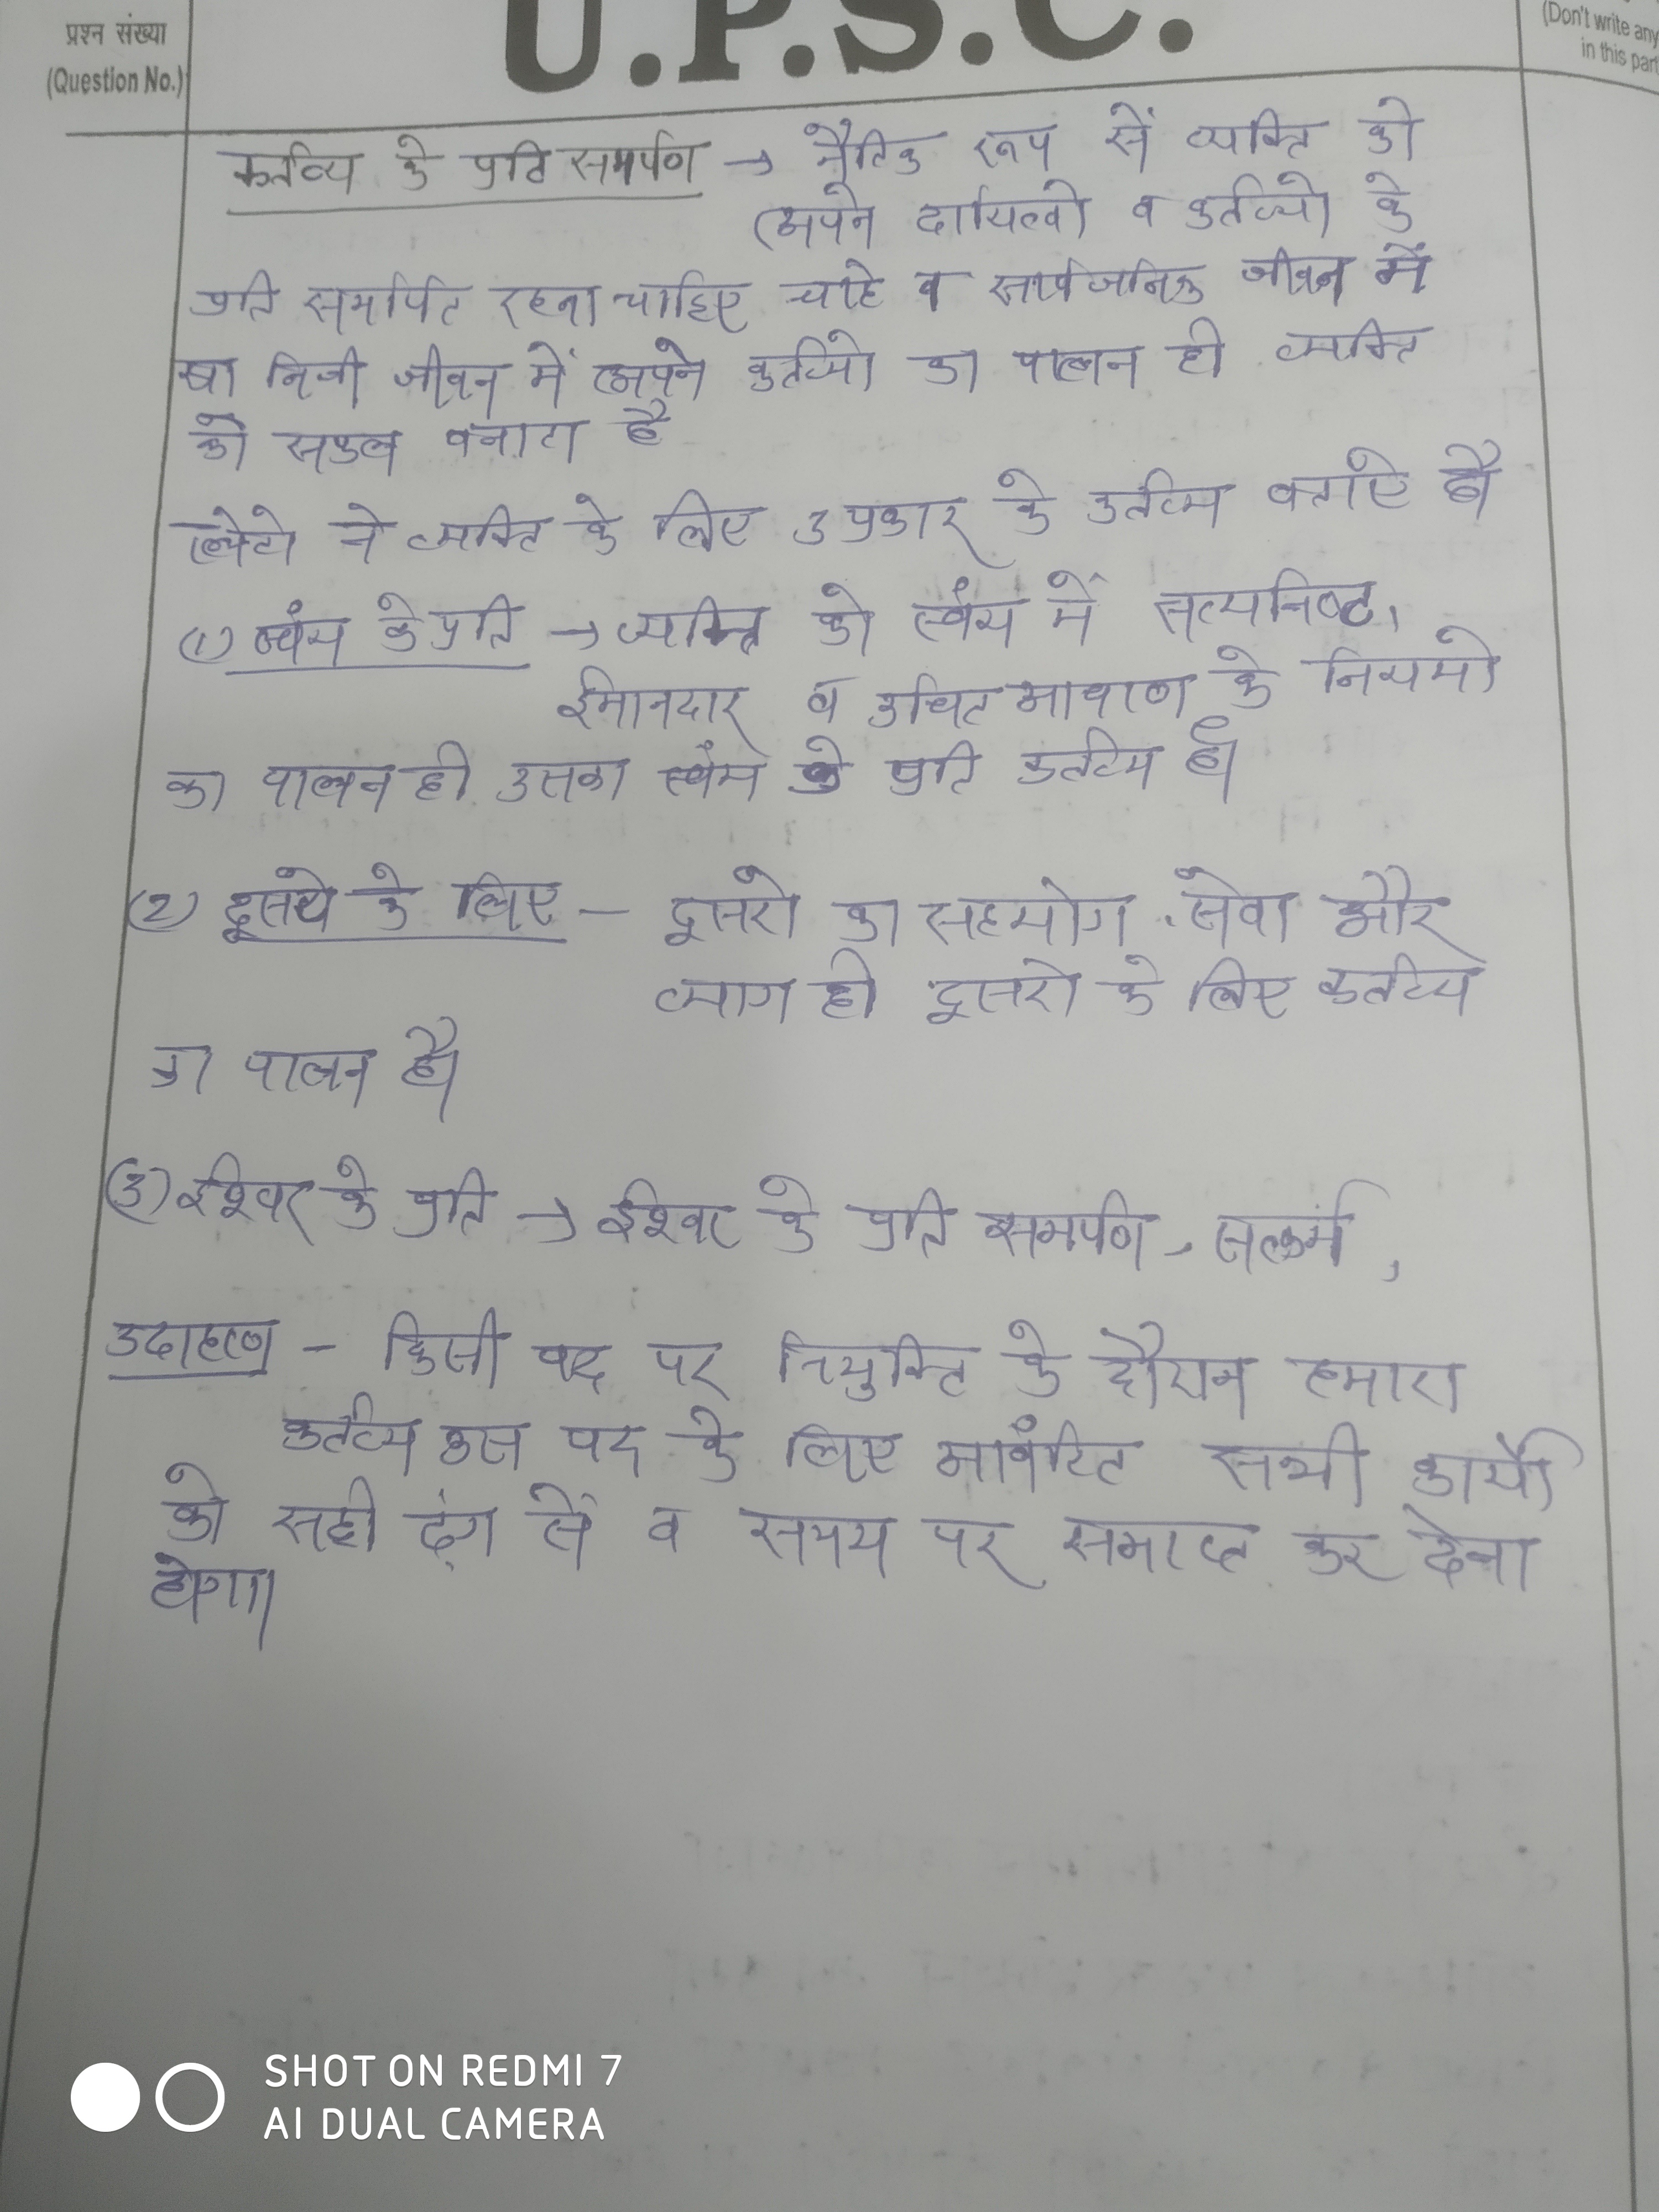 प्रश्न संख्या
(Question No.)
U.P.S.C.
(Don't write any
in this part
कर्तव्य के प्रति समर्पण → नैतिक रूप सें व्यक्ति को
अपने दायित्वो व कर्तव्यो के
प्रति समर्पित रहना चाहिए चाहे व सार्वजनिक जीवन में
या निजी जीवन में अपने कर्तव्यो का पालन ही व्यक्ति
को सफल बनाता है
प्लेटो ने व्यक्ति के लिए 3 प्रकार के कर्तव्य बताऐ है।
(1) स्वंय के प्रति → व्यक्ति को स्वंय में सत्यनिष्ठ,
ईमानदार व उचित आचरण के नियमो
का पालन ही उसका स्वंय के प्रति कर्तव्य है।
(2) दूसरो के लिए - दूसरो का सहयोग, सेवा और
त्याग ही दूसरो के लिए कर्तव्य
का पालन है।
(3) ईश्वर के प्रति → ईश्वर के प्रति समर्पण, सत्कर्म,
उदाहरण - किसी पद पर नियुक्ति के दौरान हमारा
कर्तव्य उस पद के लिए आवंटित सभी कार्यो
को सही ढंग सें व समय पर समाप्त कर देना
होगा।
SHOT ON REDMI 7
AI DUAL CAMERA